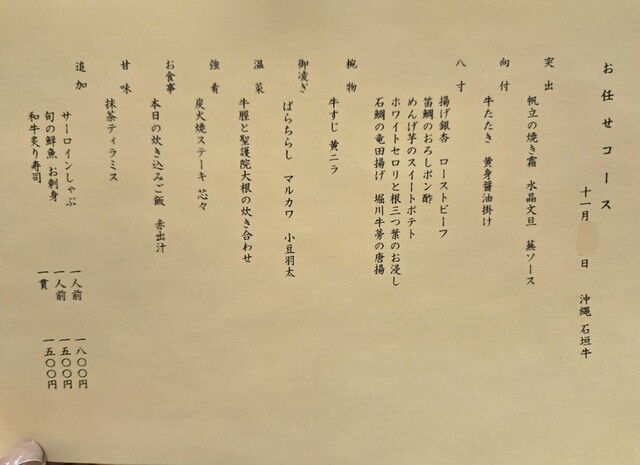 お任せコース
十一月 日 沖縄 石垣牛
突出 帆立の焼き霜 水晶文旦 蕪ソース
向付 牛たたき 黄身醤油掛け
八寸 揚げ銀杏 ローストビーフ
笛鯛のおろしポン酢
めんげ芋のスイートポテト
ホワイトセロリと根三つ葉のお浸し
石鯛の竜田揚げ 堀川牛蒡の唐揚
椀物 牛すじ 黄ニラ
御凌ぎ ばらちらし マルカワ 小豆羽太
温菜 牛腥と聖護院大根の炊き合わせ
強肴 炭火焼ステーキ 芯々
お食事 本日の炊き込みご飯 赤出汁
甘味 抹茶ティラミス
追加
サーロインしゃぶ 一人前 一八〇〇円
旬の鮮魚 お刺身 一人前 一五〇〇円
和牛炙り寿司 一貫 一五〇〇円